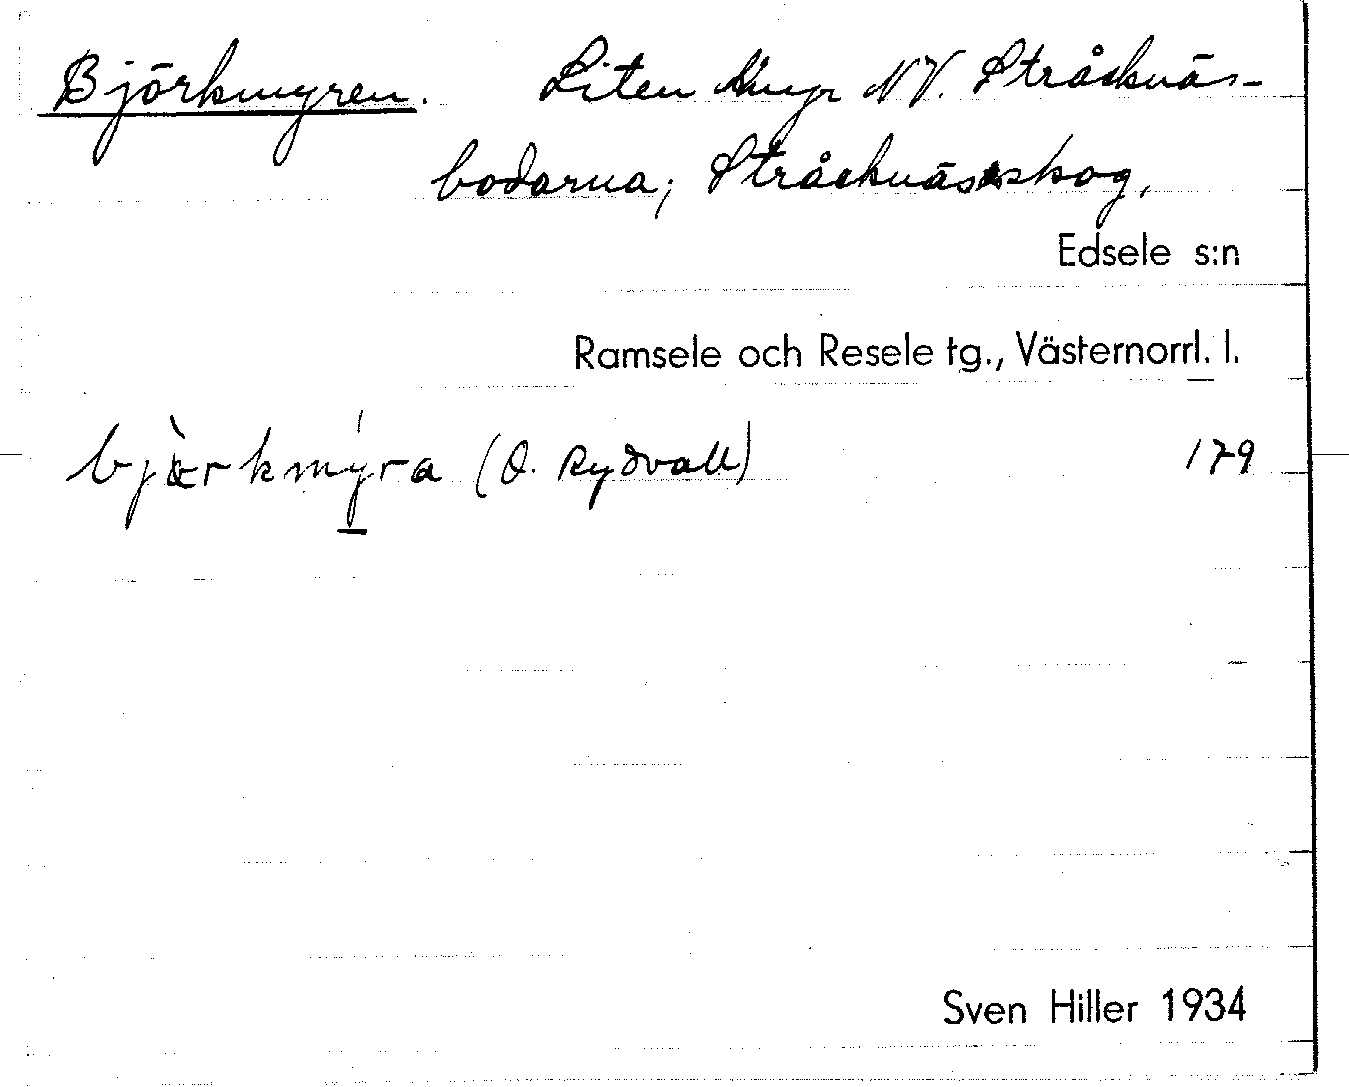 Björkmyren. Liten myr NV. Stråcknäs-
bodarna; Stråcknässkog,
Edsele s:n
Ramsele och Resele tg., Västernorrl. l.
(O. Rydvall) 179
Sven Hiller 1934